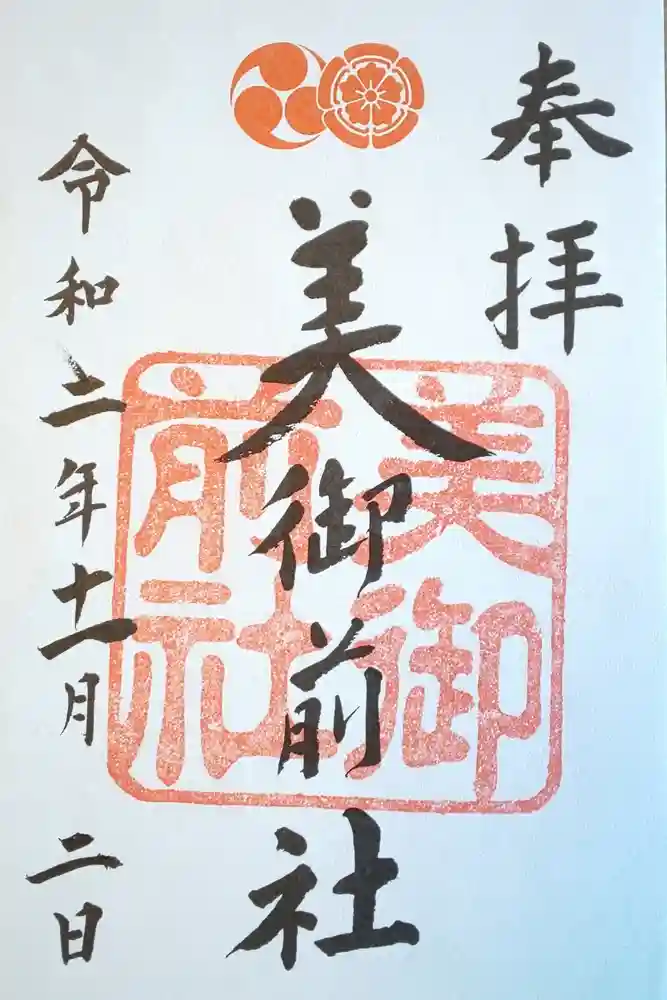 奉拝
美御前社
美御前社
令和二年十一月二日